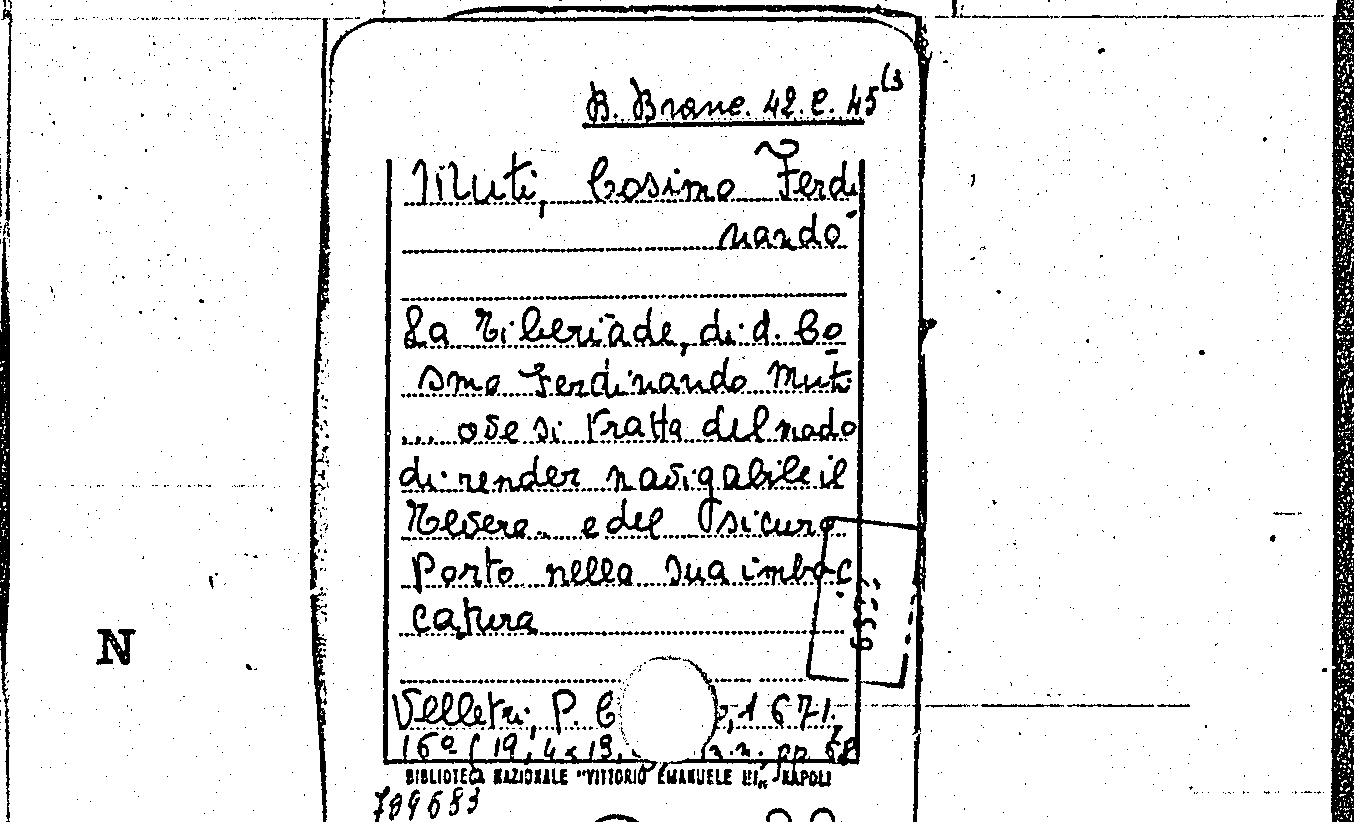 B. Branc. 42. C. 45 (3
Muti, Cosimo Ferdi
nando
La Tiberiade, di d. Co
simo Ferdinando Muti
... ove si tratta del modo
di render navigabile il
Tevere.. e del sicuro
Porto nella sua imboc
catura
N
Velletri, P. C , 1671.
16° (19,4 x 13, s.n., pp.
BIBLIOTECA NAZIONALE "VITTORIO EMANUELE III" NAPOLI
789683